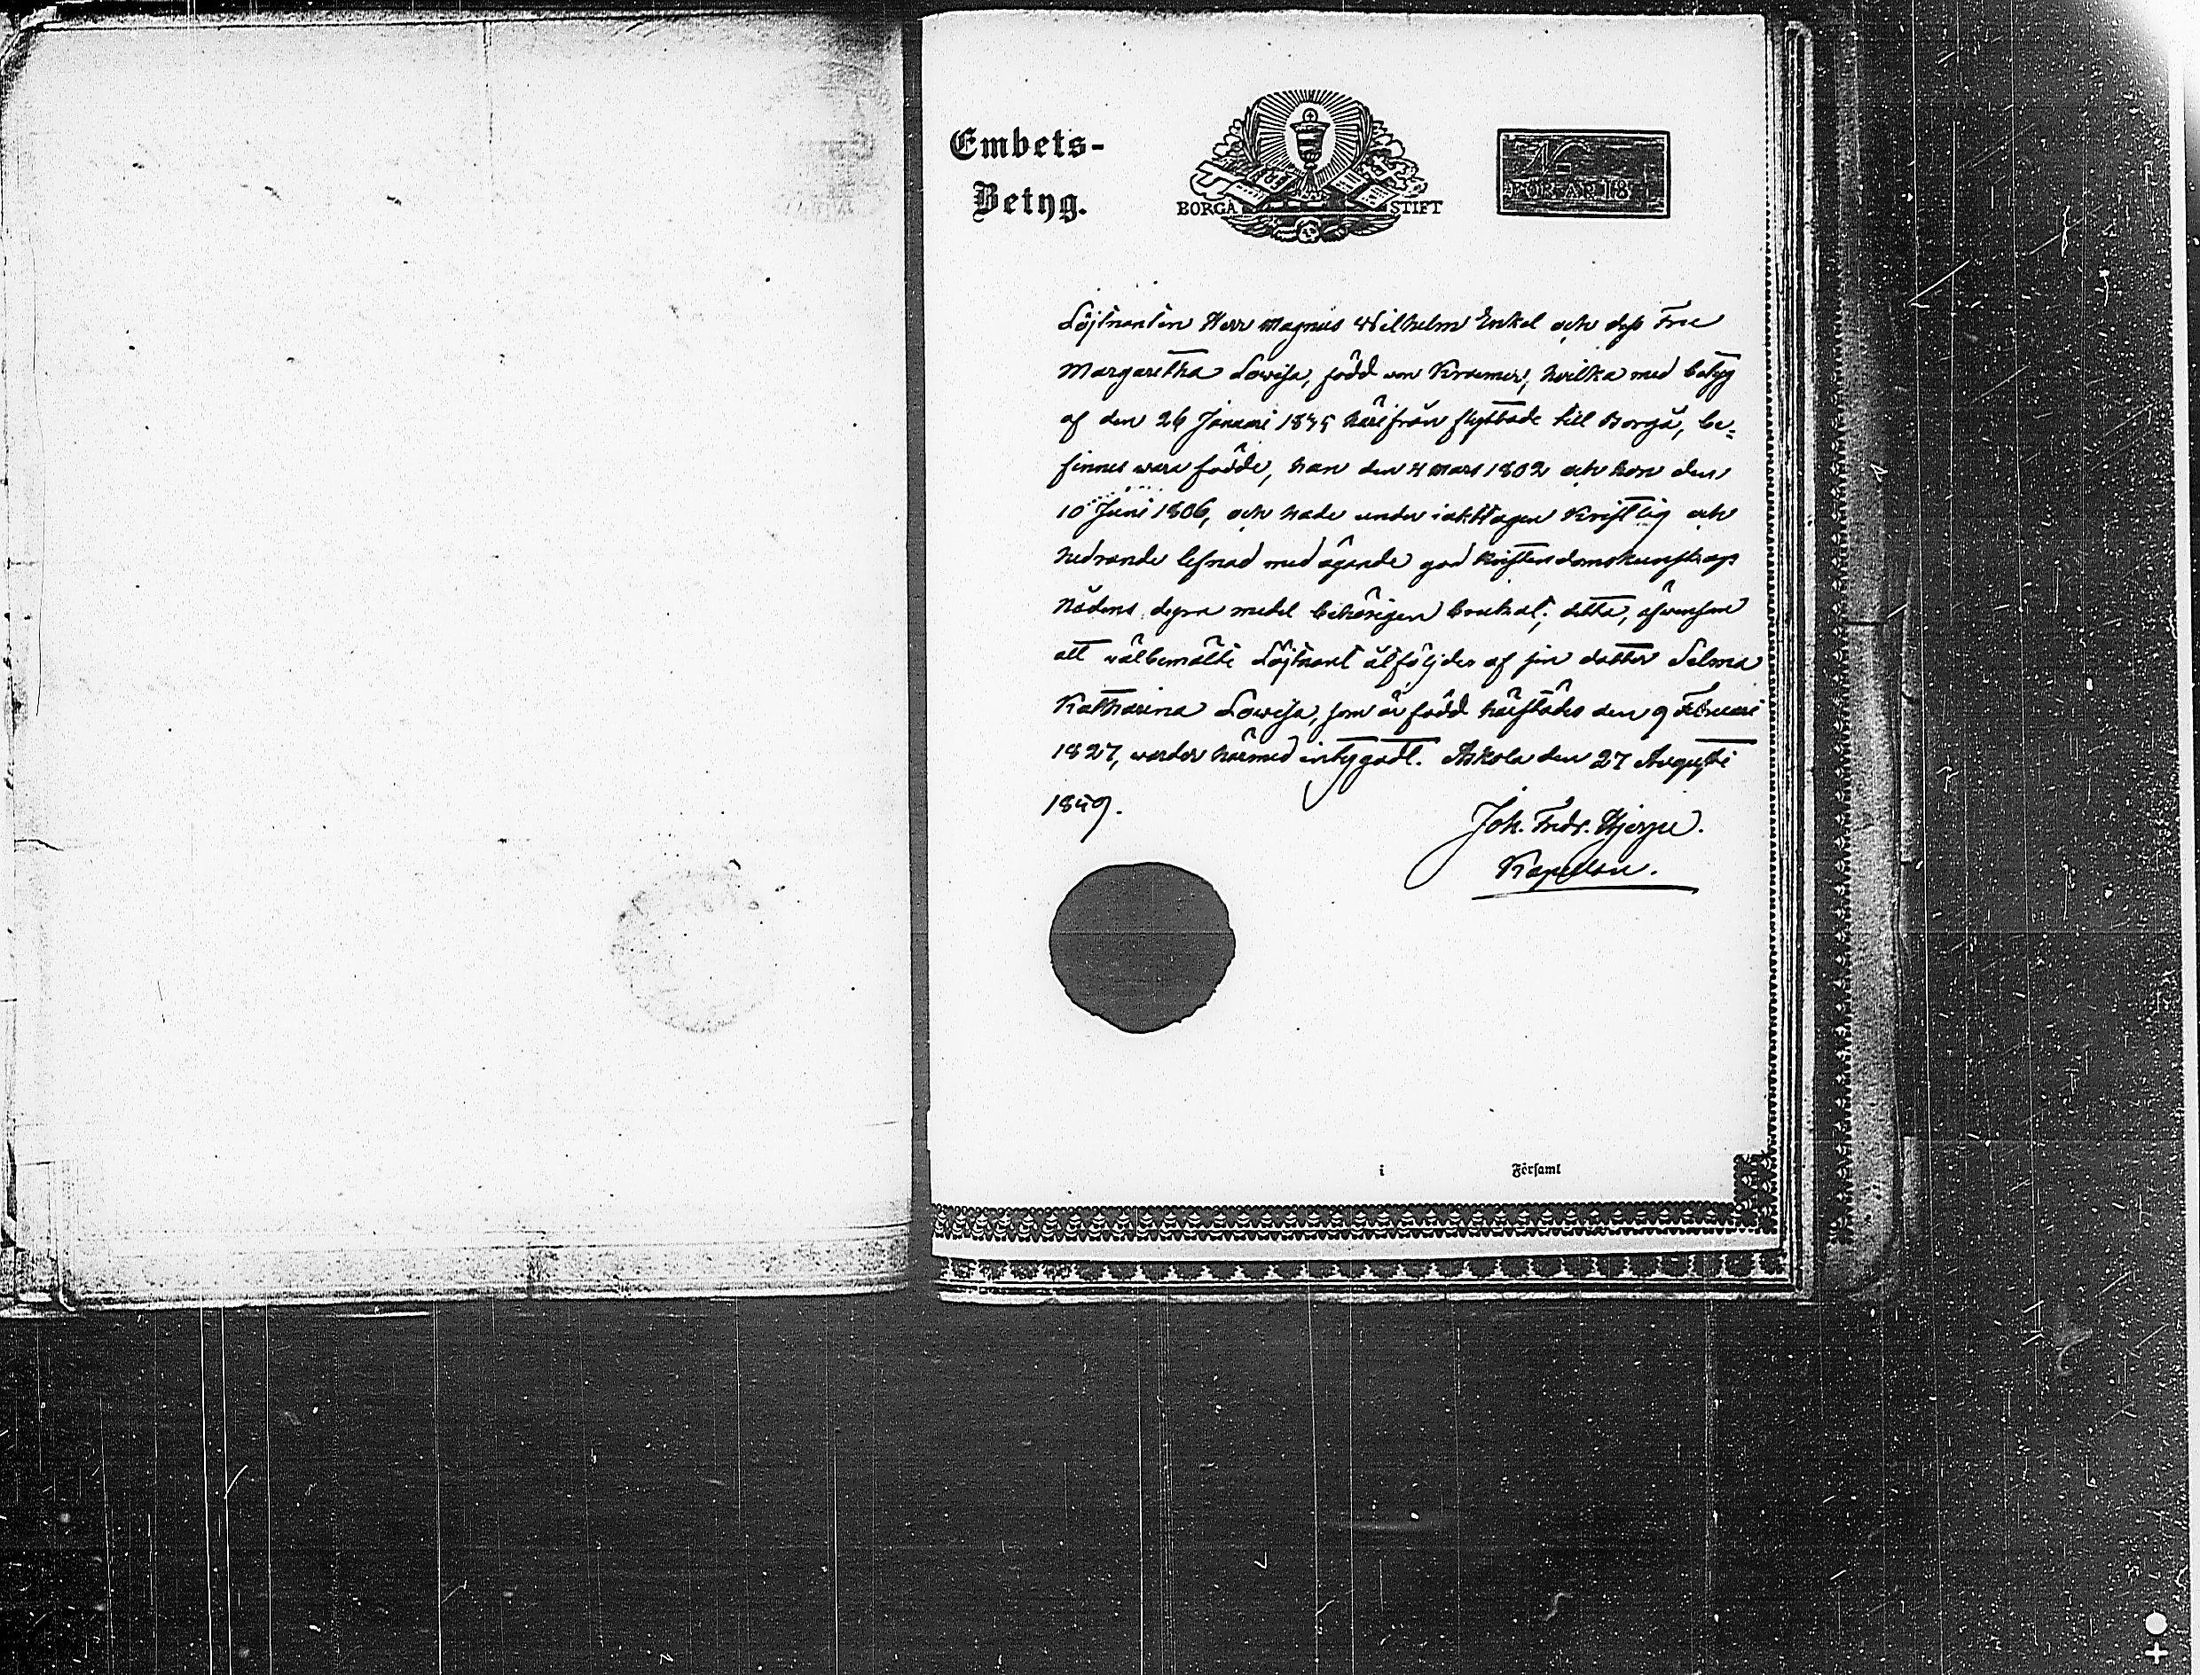 Embets-
Betyg.
BORGÅ STIFT
FÖR ÅR 18
Löjtnanten Herr Magnus Wilhelm Enkel och dess Fru
Margaretha Lovisa, född von Kraemer, hvilka med betyg
af den 26 Januari 1845 härifrån flyttade till Borgå, be=
finnes vara födde, han den 4 Mars 1802 och hon den
10 Juni 1806, och hade under iakttagen Kristlig och
hedrande lefnad med ägande god kristendomskunskap
Nådens dyra medel behörigen brukat; detta, äfvensom
att välbemälte Löjtnant åtföljdes af sin dotter Selma
Katharina Lovisa, som är född härstädes den 9 Februari
1827, warder härmed intygadt. Askola den 27 Augusti
1849.
Joh. Fredr. Hjerpe.
Kapellan.
i Församl